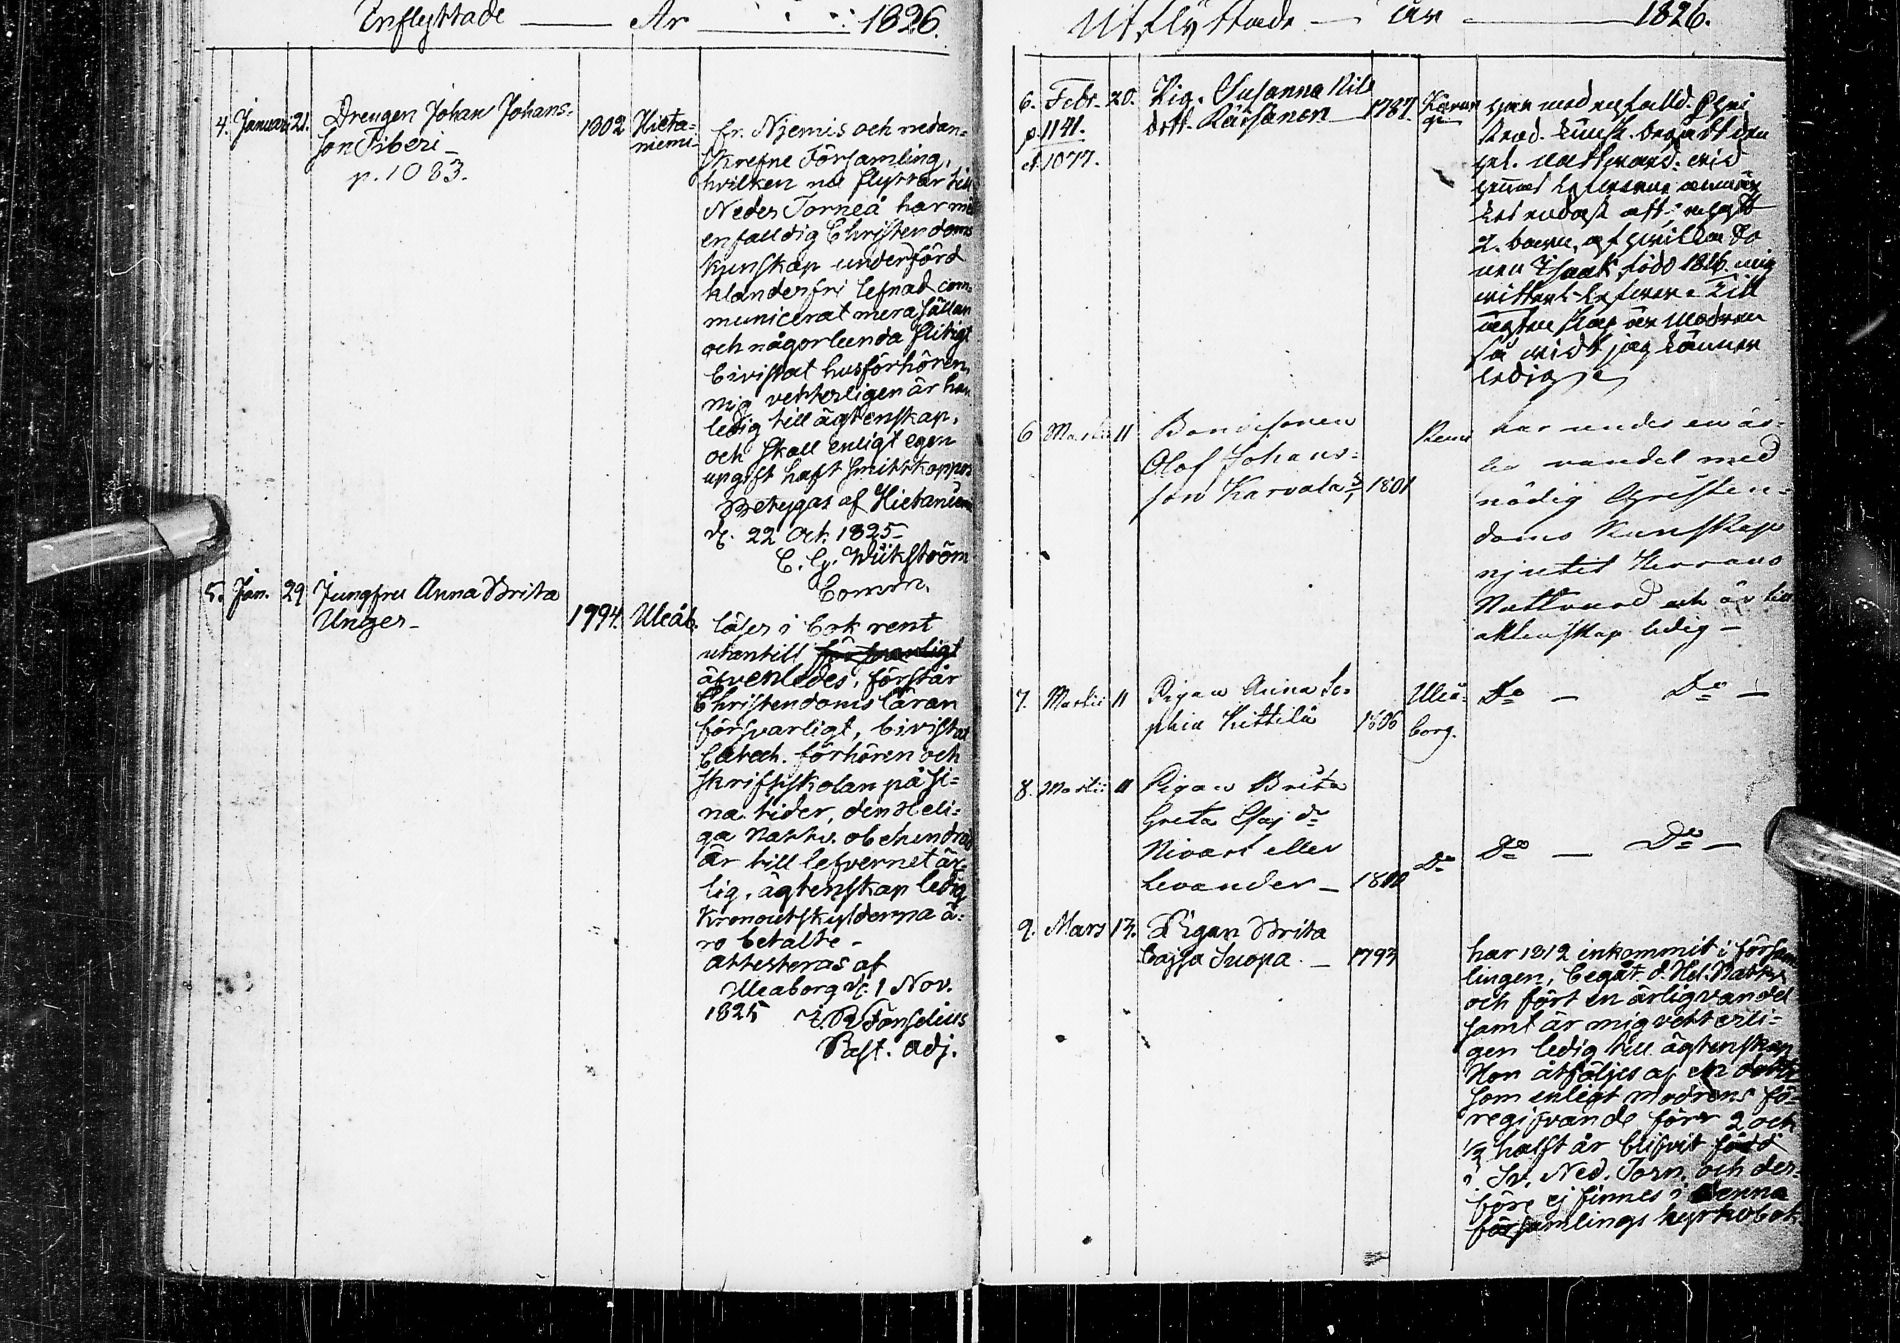 Inflyttade — År — 1826.
4. Januari 21. Drengen Johan Johans-
son Fiberi_
p. 1083.
1802 Hieta-
niemi
fr. Njemis och nedan-
skrefne Församling,
hvilken nu flyttar till
Neder Torneå har med
enfalldig Christendoms
kunskap underförd
klanderfri lefnad com-
municerat mera sällan
och någorlunda flitigt
bivistat husförhören,
mig vetterligen är han
ledig till ägtenskap,
och skall enligt egen
upgift haft smittkoppor
Betygas af Hietaniemi
d. 22 Oct. 1825_
C. G. Wiikström
Comm.
5. Jan. 29 Jungfru Anna Brita
Unger_
1794. Uleåb.
läser i bok rent
utantill
äfvenledes, förstår
Christendoms läran
försvarligt, bivistat
Catech. förhören och
skriftskolan på si-
na tider, den Heli-
ga Nattv. obehindrad
är till lefvernet är-
lig, ägtenskap ledig
Kronoutskylderna ä-
ro betalte_
attesteras af
Uleaborg d. 1 Nov.
1825
Past. Adj.
Utflyttade — år — 1826.
6. Febr. 20. Pig. Susanna Nils
dott.
1787.
p 1141.
et 1077.
har med enfalld. Chri
stend. kunsk. begådt den
hel. nattvard. wid
2. barn, af hvilka So
nen Isaak född 1826. mig
ägtenskap är Modren
så widt jag känner
ledig
6 Martii 11 Bondesonen
Olof Johans-
son Karvola
1801
Kemi
har under en är-
lig vandel med
nödig Christen-
doms Kunskap
njutit Herrans
Nattvard och är till
äktenskap ledig —
7. Martii 11 Pigan Anna So-
phia Kittilä 1806
Uleå-
borg.
Do — Do —
8. Martii 11 Pigan Brita
Greta Esaj dr
Nivari eller
Levander — Do
Do — Do —
9. Mars 13. Pigan Brita
Cajsa Suopa — 1793
har 1812 inkommit i försam
lingen, begåt d. Hel. Nattv.
och fört en ärlig vandel
samt är mig vetterli-
gen ledig till ägtenskap
Hon åtföljes af en dotter
som enligt modrens fö-
regifvande förr 2 och
1/2 halft år blifvit född
i Sv. Ned. Torn. och der-
före ej finnes i denna
församlings kyrkobok